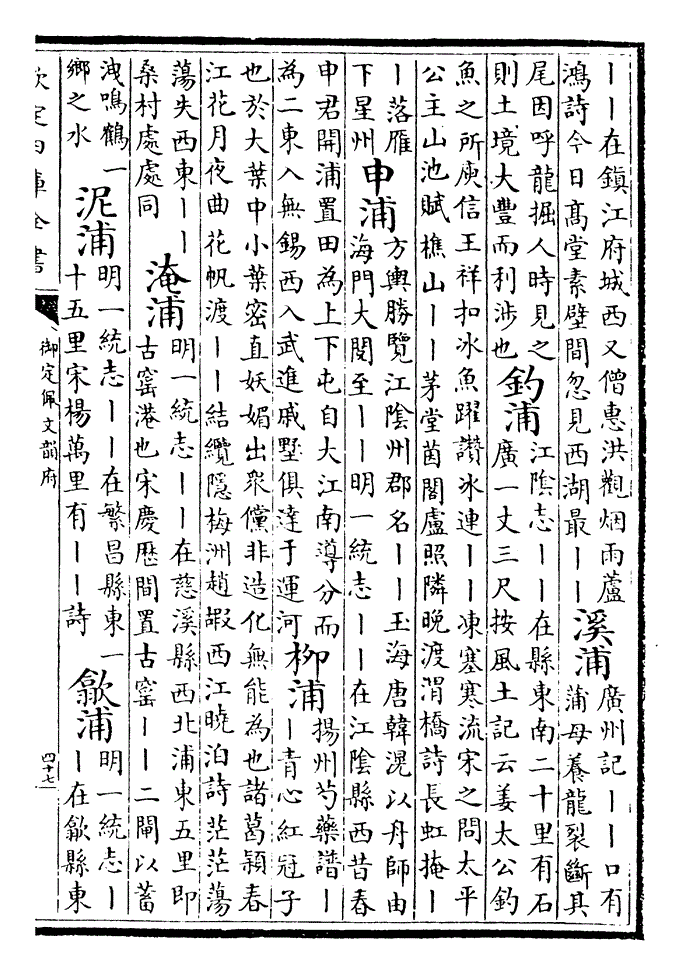 丨丨在鎮江府城西又僧惠洪觀烟雨蘆
鴻詩今日髙堂素壁間忽見西湖最丨丨
溪浦
廣州記丨丨口有
蒲母養龍裂斷其
尾因呼龍掘人時見之
則土境大豐而利涉也
釣浦
江陰志丨丨在縣東南二十里有石
廣一丈三尺按風土記云姜太公釣
魚之所庾信王祥扣冰魚躍讚冰連丨丨凍塞寒流宋之問太平
公主山池賦樵山丨丨茅堂菌閣盧照隣晚渡渭橋詩長虹掩丨
丨落雁
下星州
申浦
方輿勝覽江陰州郡名丨丨玉海唐韓滉以丹師由
海門大閱至丨丨明一統志丨丨在江陰縣西昔春
申君開浦置田為上下屯自大江南導分而
為二東入無錫西入武進戚墅俱達于運河
柳浦
揚州芍藥譜丨
丨青心紅冠子
也於大葉中小葉密直妖媚出衆儻非造化無能為也諸葛頴春
江花月夜曲花帆渡丨丨結纜隱梅洲趙嘏西江曉泊詩茫茫蕩
蕩失西東丨丨
桑村處處同
淹浦
明一統志丨丨在慈溪縣西北浦東五里即
古窰港也宋慶歴間置古窰丨丨二閘以蓄
洩鳴鶴一
鄉之水
泥浦
明一統志丨丨在繁昌縣東一
十五里宋楊萬里有丨丨詩
歙浦
明一統志丨
丨在歙縣東
欽定四庫全書
御定佩文韻府
四十七